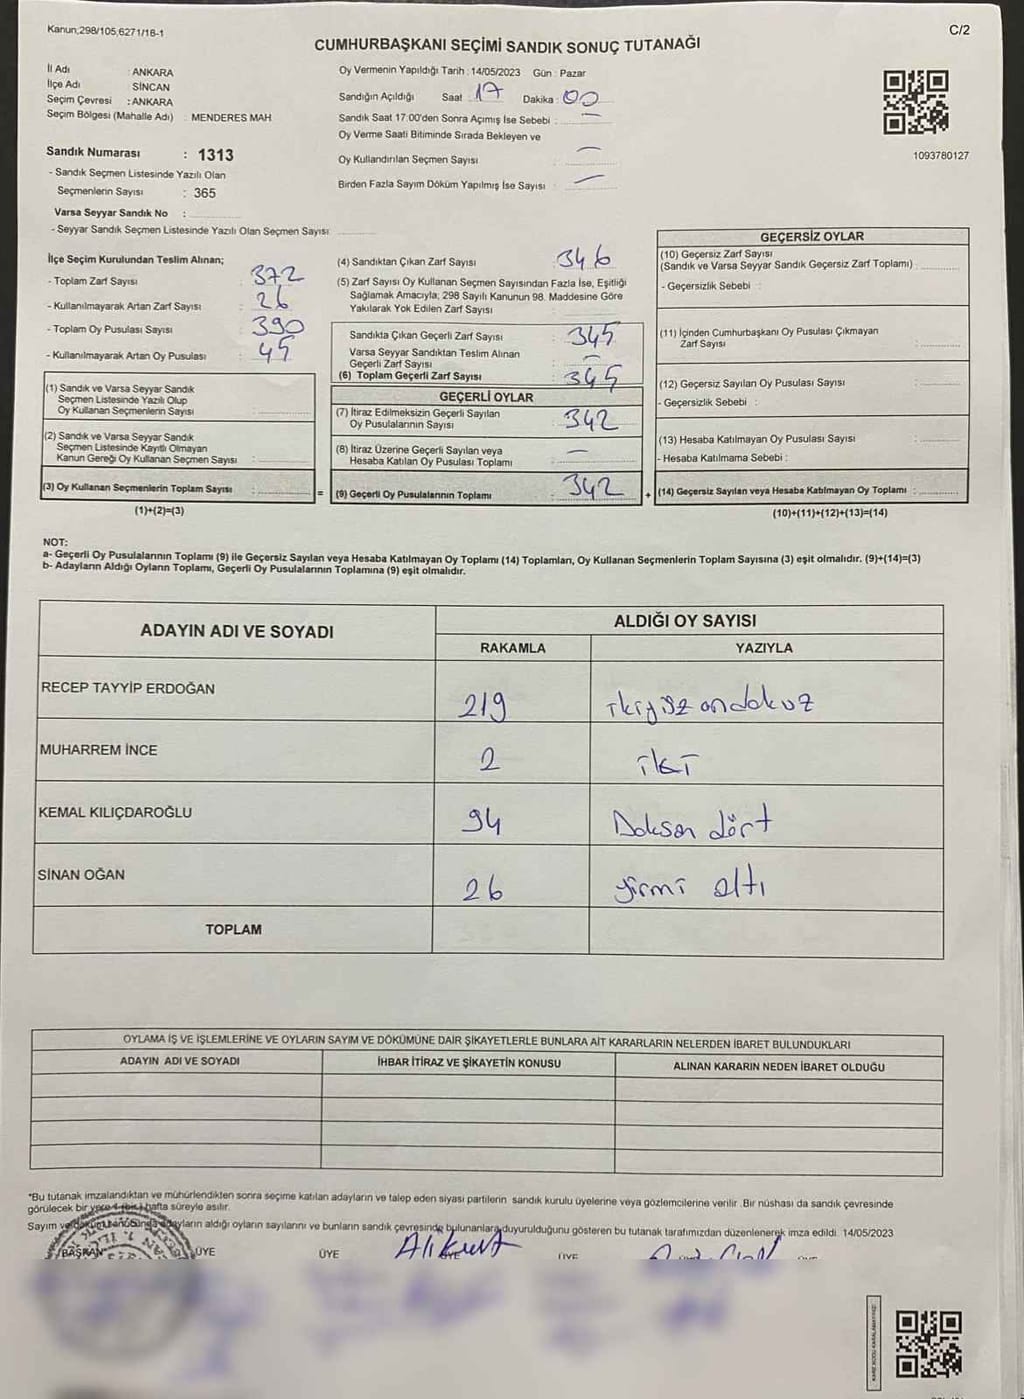 Kanun;298/105,6271/18-1
C/2
CUMHURBAŞKANI SEÇİMİ SANDIK SONUÇ TUTANAĞI
İl Adı : ANKARA
İlçe Adı : SİNCAN
Seçim Çevresi : ANKARA
Seçim Bölgesi (Mahalle Adı) : MENDERES MAH
Sandık Numarası : 1313
- Sandık Seçmen Listesinde Yazılı Olan
Seçmenlerin Sayısı : 365
Varsa Seyyar Sandık No :
- Seyyar Sandık Seçmen Listesinde Yazılı Olan Seçmen Sayısı:
Oy Vermenin Yapıldığı Tarih : 14/05/2023 Gün : Pazar
Sandığın Açıldığı Saat : 17 Dakika : 00
Sandık Saat 17:00'den Sonra Açımış İse Sebebi : —
Oy Verme Saati Bitiminde Sırada Bekleyen ve
Oy Kullandırılan Seçmen Sayısı : —
Birden Fazla Sayım Döküm Yapılmış İse Sayısı : —
1093780127
İlçe Seçim Kurulundan Teslim Alınan;
- Toplam Zarf Sayısı : 372
- Kullanılmayarak Artan Zarf Sayısı : 26
- Toplam Oy Pusulası Sayısı : 390
- Kullanılmayarak Artan Oy Pusulası : 45
(1) Sandık ve Varsa Seyyar Sandık
Seçmen Listesinde Yazılı Olup
Oy Kullanan Seçmenlerin Sayısı :
(2) Sandık ve Varsa Seyyar Sandık
Seçmen Listesinde Kayıtlı Olmayan
Kanun Gereği Oy Kullanan Seçmen Sayısı :
(3) Oy Kullanan Seçmenlerin Toplam Sayısı :
(1)+(2)=(3)
(4) Sandıktan Çıkan Zarf Sayısı : 346
(5) Zarf Sayısı Oy Kullanan Seçmen Sayısından Fazla İse, Eşitliği
Sağlamak Amacıyla, 298 Sayılı Kanunun 98. Maddesine Göre
Yakılarak Yok Edilen Zarf Sayısı :
Sandıkta Çıkan Geçerli Zarf Sayısı : 345
Varsa Seyyar Sandıktan Teslim Alınan
Geçerli Zarf Sayısı : —
(6) Toplam Geçerli Zarf Sayısı : 345
GEÇERLİ OYLAR
(7) İtiraz Edilmeksizin Geçerli Sayılan
Oy Pusulalarının Sayısı : 342
(8) İtiraz Üzerine Geçerli Sayılan veya
Hesaba Katılan Oy Pusulası Toplamı : —
= (9) Geçerli Oy Pusulalarının Toplamı : 342 +
GEÇERSİZ OYLAR
(10) Geçersiz Zarf Sayısı
(Sandık ve Varsa Seyyar Sandık Geçersiz Zarf Toplamı) :
- Geçersizlik Sebebi :
(11) İçinden Cumhurbaşkanı Oy Pusulası Çıkmayan
Zarf Sayısı :
(12) Geçersiz Sayılan Oy Pusulası Sayısı :
- Geçersizlik Sebebi :
(13) Hesaba Katılmayan Oy Pusulası Sayısı :
- Hesaba Katılmama Sebebi :
(14) Geçersiz Sayılan veya Hesaba Katılmayan Oy Toplamı :
(10)+(11)+(12)+(13)=(14)
NOT:
a- Geçerli Oy Pusulalarının Toplamı (9) ile Geçersiz Sayılan veya Hesaba Katılmayan Oy Toplamı (14) Toplamları, Oy Kullanan Seçmenlerin Toplam Sayısına (3) eşit olmalıdır. (9)+(14)=(3)
b- Adayların Aldığı Oyların Toplamı, Geçerli Oy Pusulalarının Toplamına (9) eşit olmalıdır.
ADAYIN ADI VE SOYADI
ALDIĞI OY SAYISI
RAKAMLA YAZIYLA
RECEP TAYYİP ERDOĞAN 219 ikiyüz ondokuz
MUHARREM İNCE 2 iki
KEMAL KILIÇDAROĞLU 94 Doksan dört
SİNAN OĞAN 26 yirmi altı
TOPLAM
OYLAMA İŞ VE İŞLEMLERİNE VE OYLARIN SAYIM VE DÖKÜMÜNE DAİR ŞİKAYETLERLE BUNLARA AİT KARARLARIN NELERDEN İBARET BULUNDUKLARI
ADAYIN ADI VE SOYADI İHBAR İTİRAZ VE ŞİKAYETİN KONUSU ALINAN KARARIN NEDEN İBARET OLDUĞU
*Bu tutanak imzalandıktan ve mühürlendikten sonra seçime katılan adayların ve talep eden siyasi partilerin sandık kurulu üyelerine veya gözlemcilerine verilir. Bir nüshası da sandık çevresinde
görülecek bir yere 1 (bir) hafta süreyle asılır.
Sayım ve döküm adayların aldığı oyların sayılarını ve bunların sandık çevresinde bulunanlara duyurulduğunu gösteren bu tutanak tarafımızdan düzenlenerek imza edildi. 14/05/2023
BAŞKAN ÜYE ÜYE ÜYE ÜYE
Ali Kurt